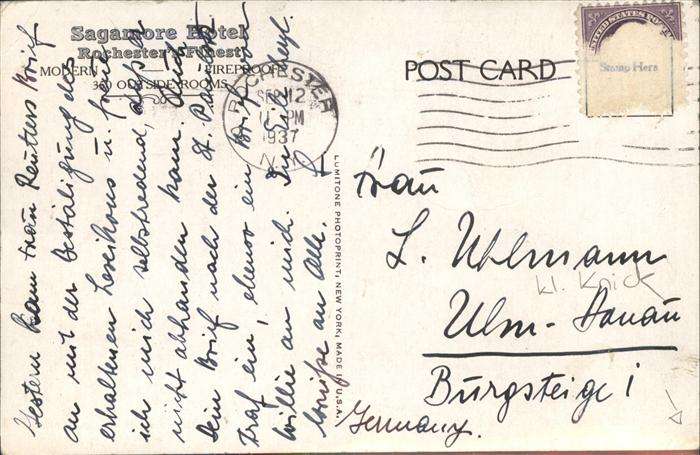 Sagamore Hotel
Rochester's Finest
MODERN FIREPROOF
OUTSIDE ROOMS
ROCHESTER
SEP 12
PM
1937
N.Y.
UNITED STATES POST
Stamp Here
POST CARD
Gestern kam Frau Reutters Brief
an mit der Bestätigung des
erhaltenen Lexikons u. freue
ich mich selbstredend, daß er
nicht abhanden kam. Auch
Dein Brief nach der St. Paul
traf ein, ebenso ein Brief von
Willie an mich. Dir u.
Grüße an Alle.
LUMITONE PHOTOPRINT, NEW YORK, MADE IN U.S.A.
Frau
L. Uhlmann
kl. Knick
Ulm-Donau
Burgsteige 1
Germany.